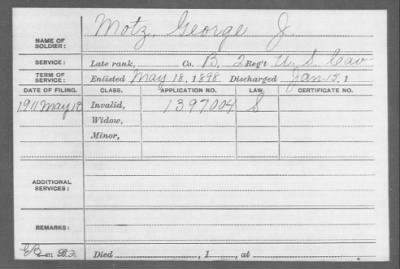 Motz, George J.
NAME OF SOLDIER:
SERVICE: Late rank, Co. B, 2 Reg't U. S. Cav
TERM OF SERVICE: Enlisted May 18, 1898 Discharged Jan 15, 1
DATE OF FILING. CLASS. APPLICATION NO. LAW. CERTIFICATE NO.
1911 May 18 Invalid, 1397004 S
Widow,
Minor,
ADDITIONAL SERVICES:
REMARKS:
Died , 1 , at